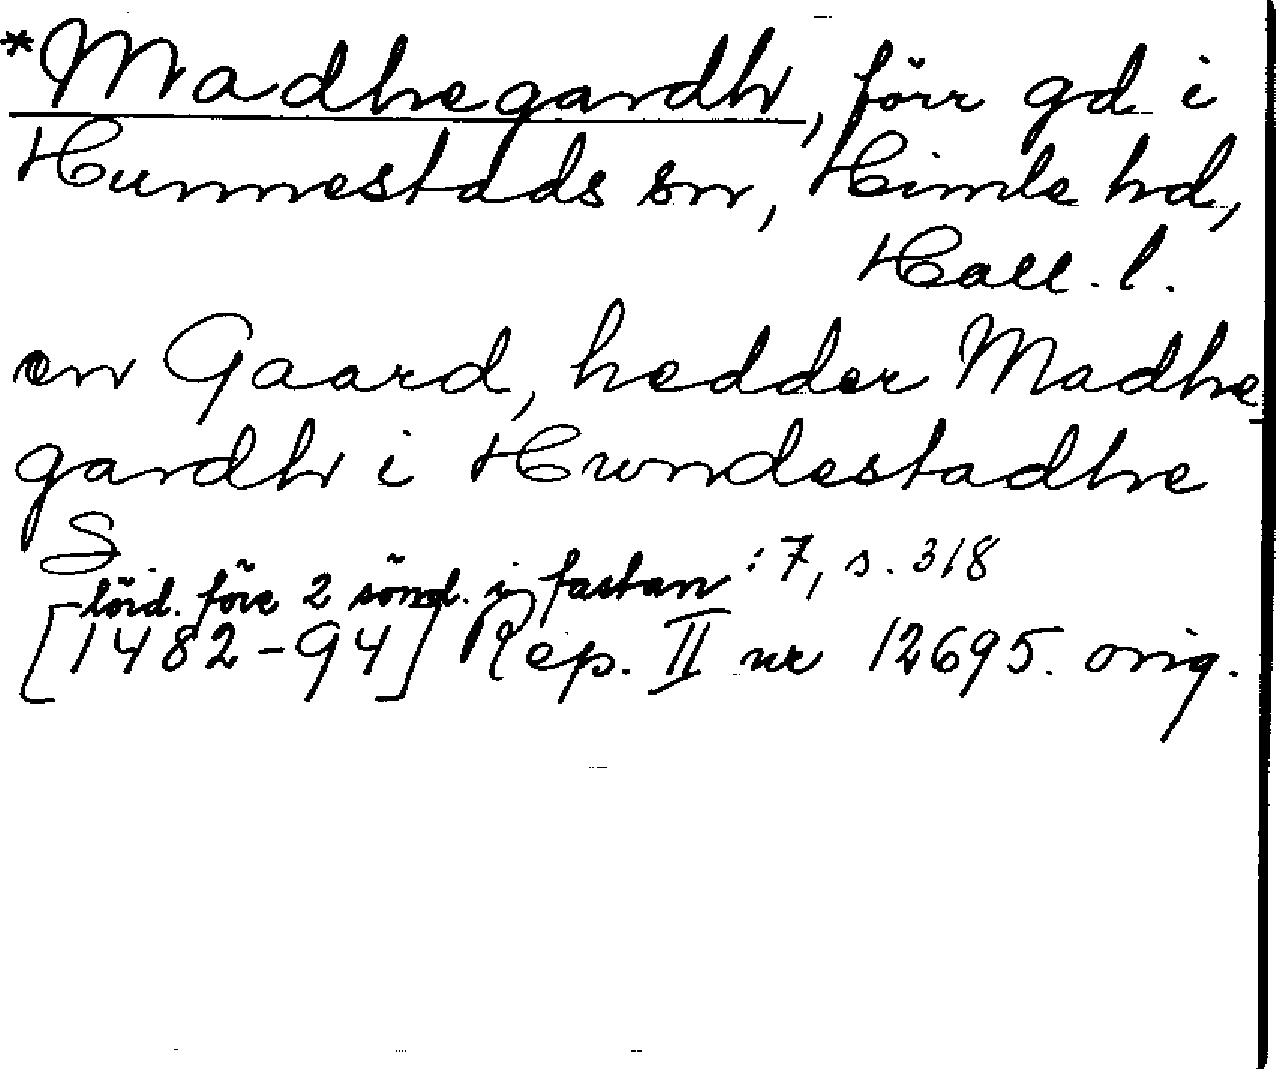 *Madhegardh, förr gd i
Hunnestads sn, Himle hd,
Hall. l.
en Gaard, hedder Madhe-
gardh i Hwndestadhe
S
lörd. före 2 sönd. i fastan :7, s. 318
[1482-94] Rep. II nr 12695. orig.